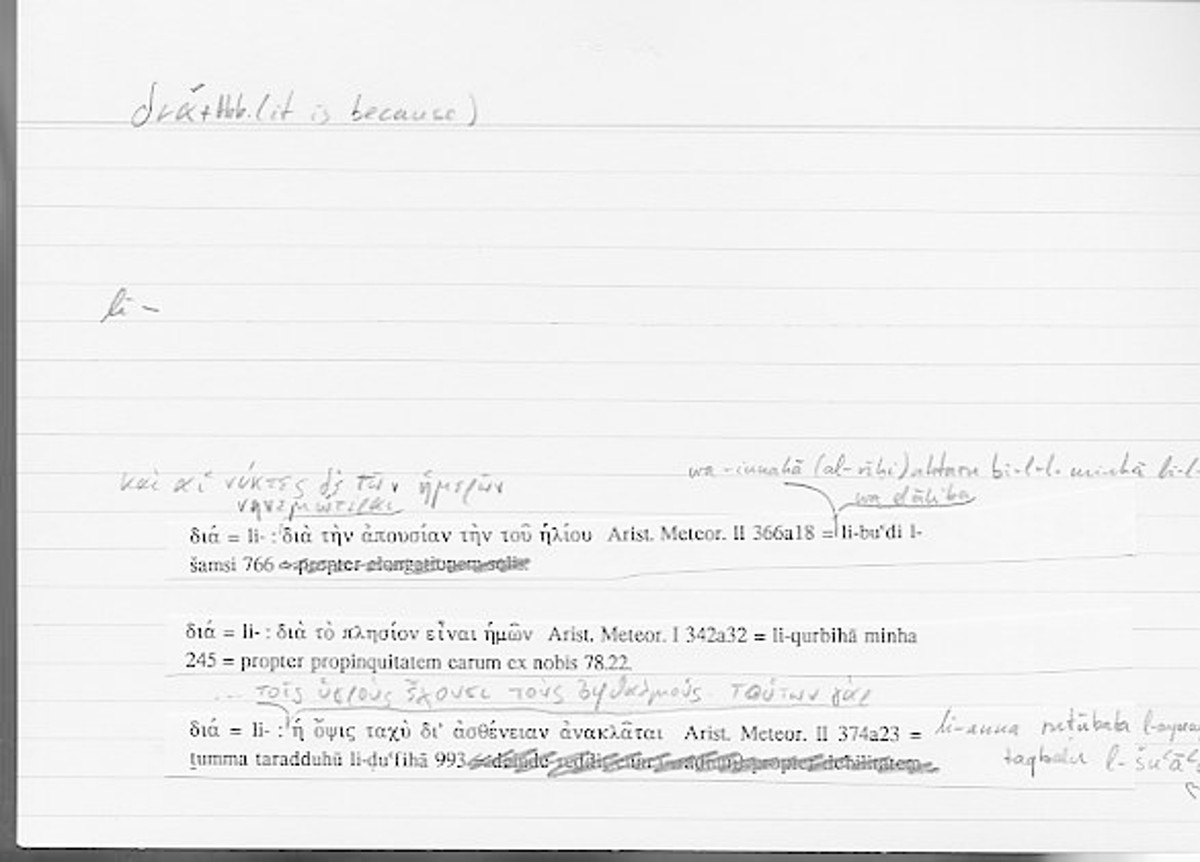 διά + Hbb. (it is because)
li-
καὶ αἱ νύκτες δὲ τῶν ἡμερῶν
wa-innahā (al-rīḥi) aktaru bi-l-l- minhā li-l-
νηνεμώτεραι
διά = li- : διὰ τὴν ἀπουσίαν τὴν τοῦ ἡλίου Arist. Meteor. II 366a18 = li-buʿdi l-
šamsi 766 = propter elongationem solis
διά = li- : διὰ τὸ πλησίον εἶναι ἡμῶν Arist. Meteor. I 342a32 = li-qurbihā minha
245 = propter propinquitatem earum ex nobis 78.22.
... τοῖς ὑγροὺς ἔχουσι τοὺς ὀφθαλμούς· τούτων γὰρ
διά = li- : ἡ ὄψις ταχὺ δι' ἀσθένειαν ἀνακλᾶται Arist. Meteor. II 374a23 = li-anna ruṭūbata l-
ṯumma taradduhū li-ḍuʿfihā 993 propter debilitatem taqbalu l-šuʿāʿ